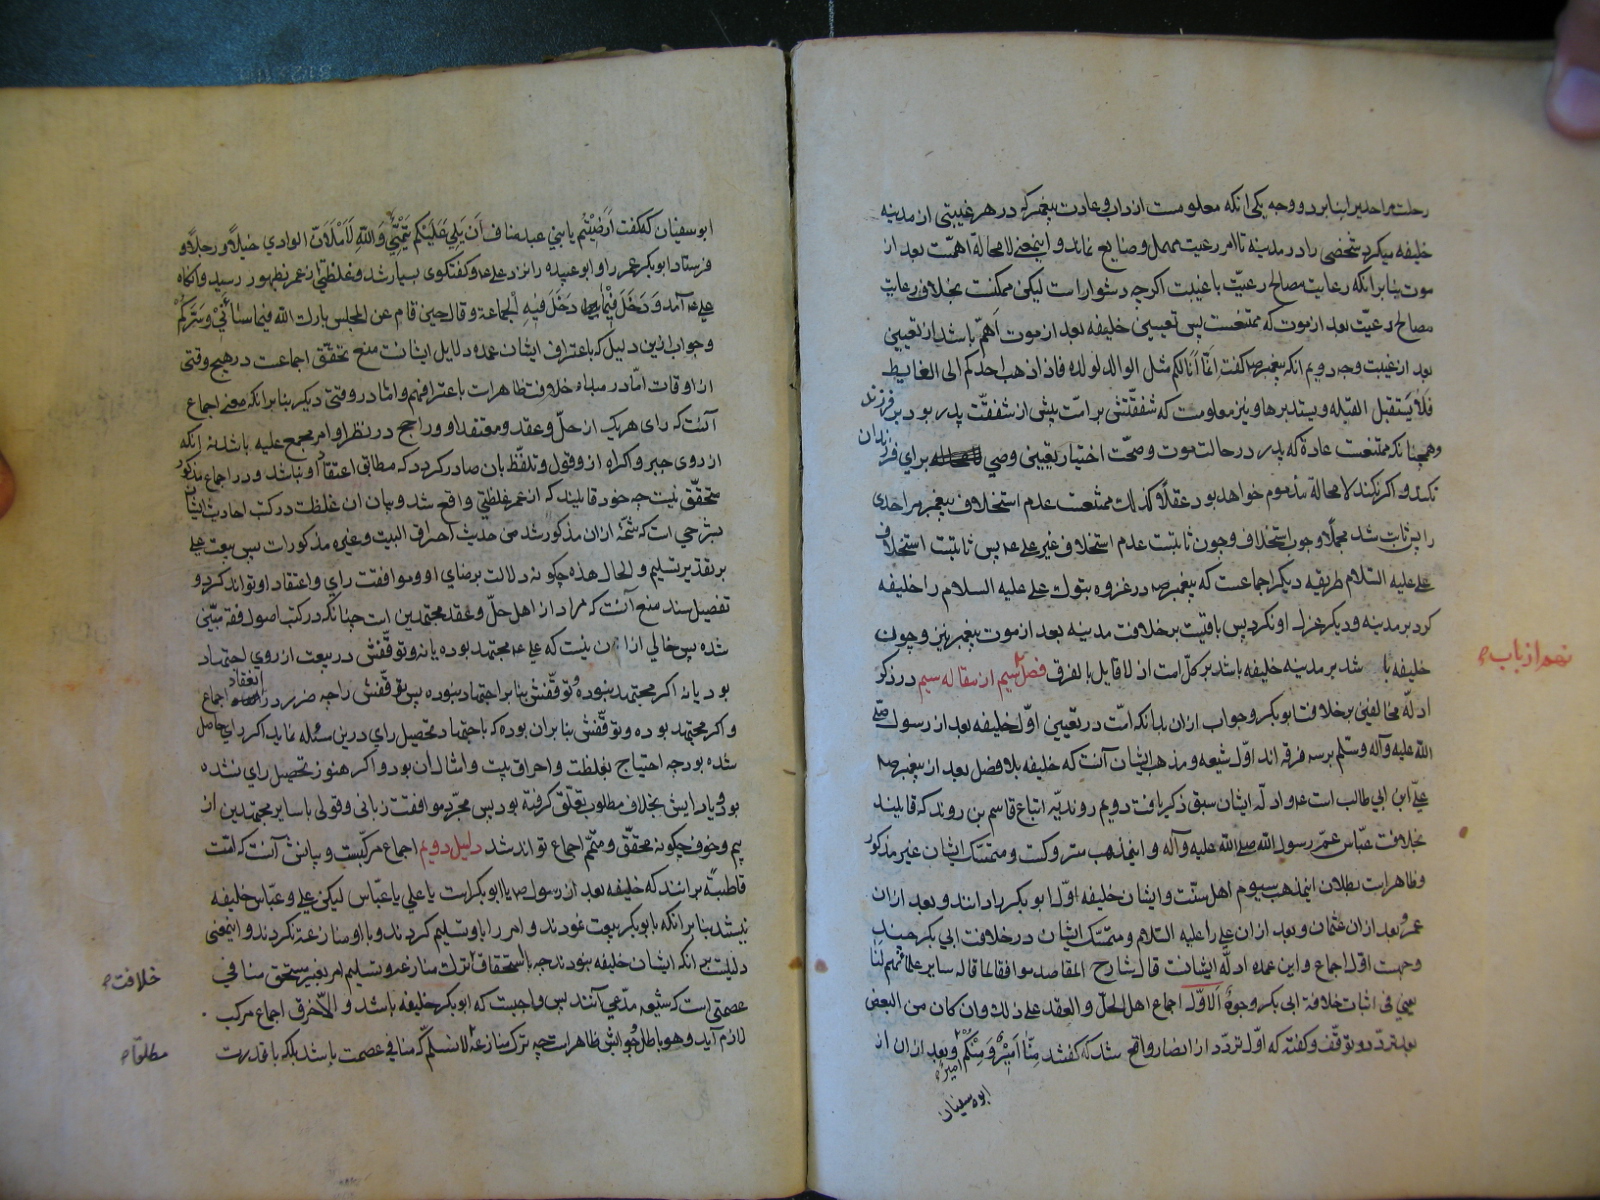 رحلت مراحدیرا بنابر دو وجه یکی انکه معلومست از داب و عادت پیغمبر که در هر غیبتی از مدینه
خلیفه میکرد شخصی را در مدینه تا امر رعیت مهمل و ضایع نماند و اینمعنی لامحالة اهمّست بعد از
موت بنابر انکه رعایت مصالح رعیّت با غیبت اکرچه دشوار است لیکن ممکنست بخلاف رعایت
مصالح رعیّت بعد از موت که ممتنعست پس تعیین خلیفه بعد از موت اَهمّ باشد از تعیین
بعد از غیبت وجه دویم انکه پیغمبر صه کفت انّما اَنا لکم مثل الوالد لولده فاذا ذهب احدکم الی الغایط
فلا یَستقبل القبله و یستدبرها و نیز معلومست که شفقّتش بر امّت بیش از شفقّت پدر بود بر فرزند
وهمچنانکه ممتنعست عادة که پدر در حالت موت و صحّت اختیار تعیین وصی برای فرزندان
نکند و اکر نکند لامحالة مذموم خواهد بود عقلاً کذلک ممتنعست عدم استخلاف پیغمبر مر احدی
را پس ثابت شد مجملاً وجوب استخلاف و چون ثابتست عدم استخلاف غیر علی عه پس ثابتست استخلاف
علی علیه السّلام طریقه دیکر اجماعست که پیغمبر صه در غزوه تبوک علی علیه السلام را خلیفه
کرد بر مدینه و دیکر عزل او نکرد پس باقیست بر خلافت مدینه بعد از موت پیغمبر نیز و چون
خلیفه با شد بر مدینه خلیفه باشد بر کلّ امت اذ لا قایل بالفرق فصل سیم از مقاله سیم در ذکر
نهم از باب
ادلّه مخالفین بر خلافت ابوبکر و جواب ازان بدانکه امّت در تعیین اوّل خلیفه بعد از رسول صلّی
الله علیه و آله و سلّم بر سه فرقه اند اوّل شیعه و مذهب ایشان آنست که خلیفه بلا فصل بعد از پیغمبر صه
علیّ ابن ابی طالب است عه و ادلّه ایشان سبق ذکر یافت دویم روندیّه اتباع قاسم بن روند که قایلند
بخلافت عبّاس عمّ رسول الله صلی الله علیه و آله و اینمذهب متروکست و متمسّک ایشان غیر مذکور
و ظاهر است بطلان اینمذهب سیوم اهل سنّت و ایشان خلیفه اوّل ابوبکر را دانند و بعد ازان
عمر و بعد ازان عثمان و بعد ازان علی را علیه السّلام و متمسّک ایشان در خلافت ابی بکر چند
وجهست اوّل اجماع و این عمده ادلّه ایشانست قال شارح المقاصد موافقا لما قاله سایر علمائهم لنا
یعنی فی اثبات خلافة ابی بکر وجوهٌ الاوّل اجماع اهل الحلّ و العقد علی ذلک وان کان من البعض
بعد تردّد و توقّف و کفته که اوّل تردّد از انصار واقع شد که کفتند منّا اَمیرٌ وَ مِنْکُمْ و بعد ازان از
امیرٌ
ابو سفیان
ابوسفیان که کفت اَرَضیتُم یا بنی عبد مناف اَن یَلِیَ عَلَیکُم تَیمِیٌّ وَ اللهِ لَاَملَانّ الوادی خیلاً و رجلاً و
فرستاد ابوبکر عمر را و ابو عبیده را نزد علی عه و کفتکوی بسیار شد و غلظتی از عمر بظهور رسید و آنکاه
علی عه آمد و دَخَلَ فیما دخَلَ فیهِ الجماعة و قال حین قام عن المجلس بارک الله فیما سائنی و سَرّکم
و جواب ازین دلیل که باعتراف ایشان عمده دلایل ایشانست منع تحقّق اجماعست در هیچ وقتی
از اوقات امّا در مبداء خلافت ظاهر است باعترافهم و امّا در وقتی دیکر بنابر انکه معنی اجماع
آنست که رای هر یک از حلّ و عقد و معتقد او و راجح در نظر او امر مجمع علیه باشد نه انکه
از روی جبر و اکراه از و قول و تلفّظ بان صادر کردد که مطابق اعتقاد او نباشد و در اجماع مذکور
متحقّق نیست چه خود قایلند که از عمر غلظتی واقع شد و بیان ان غلظت در کتب احادیث ایشان
بشرحی است که شمّه ازان مذکور شد من حدیث احراق البیت و غیره مذکورات پس بیعت علی
بر تقدیر تسلیم و الحال هذه چکونه دلالت بر رضای او و موافقت رای و اعتقاد او تواند کرد و
تفصیل سند منع آنست که مراد از اهل حلّ و عقد مجتهدین است چنانکه در کتب اصول فقه مبیّن
شده پس خالی ازان نیست که علی عه مجتهد بوده یا نه و توقّفش در بیعت از روی اجتهاد
بود یا نه اکر مجتهد نبوده و توقّفش بنابر اجتهاد نبوده پس توقّفش را چه ضرر در انعقاد اجماع
و اکر مجتهد بوده و توقّفش بنابران بوده که باجتهاد تحصیل رای درین مسئله نماید اکر رای حاصل
شده بود چه احتیاج بغلظت و احراق بیت و امثال آن بود و اکر هنوز تحصیل رای نشده
بود یا رایش بخلاف مطلوب تعلّق کرفته بود پس مجرّد موافقت زبانی و قولی با سایر مجتهدین از
بیم و خوف چکونه محقّق و متمّم اجماع تواند شد دلیل دویم اجماع مرکّبست و بیانش آنست که امّت
قاطبةً برانند که خلیفه بعد از رسول صه یا ابوبکر است یا علی یا عبّاس لیکن علی و عبّاس خلیفه
نیستند بنابر انکه با ابوبکر بیعت نمودند و امر را باو تسلیم کردند و با او منازعة نکردند و اینمعنی
دلیلست بر انکه ایشان خلیفه نبودند چه با استحقاق ترک منازعه و تسلیم امر بغیر مستحق منافی
خلافت
عصمتی است که شیعه مدّعی آنند پس واجبست که ابوبکر خلیفه باشد و الّا خرق اجماع مرکب
لازم آید و هو باطل و جوابش ظاهر است چه ترک منازعه لا نسلّم که منافی عصمت باشد بلکه با قدرت
مطلقا